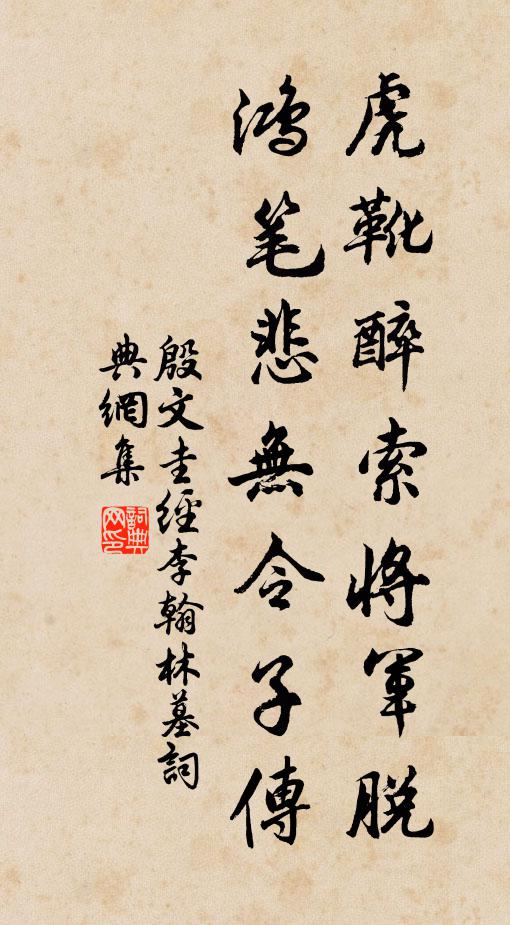 虎靴醉索將軍脫
鴻笔悲無令子傳
殷文圭經李翰林墓詞
典網集
詞典
网印